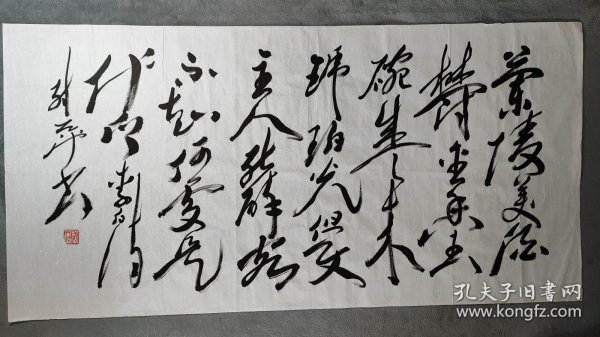 蘭陵美酒
鬱金香玉
碗盛来
琥珀光但使
主人能醉客
不知何处是
他乡李白诗
书
孔夫子旧書网
www.kongfz.com